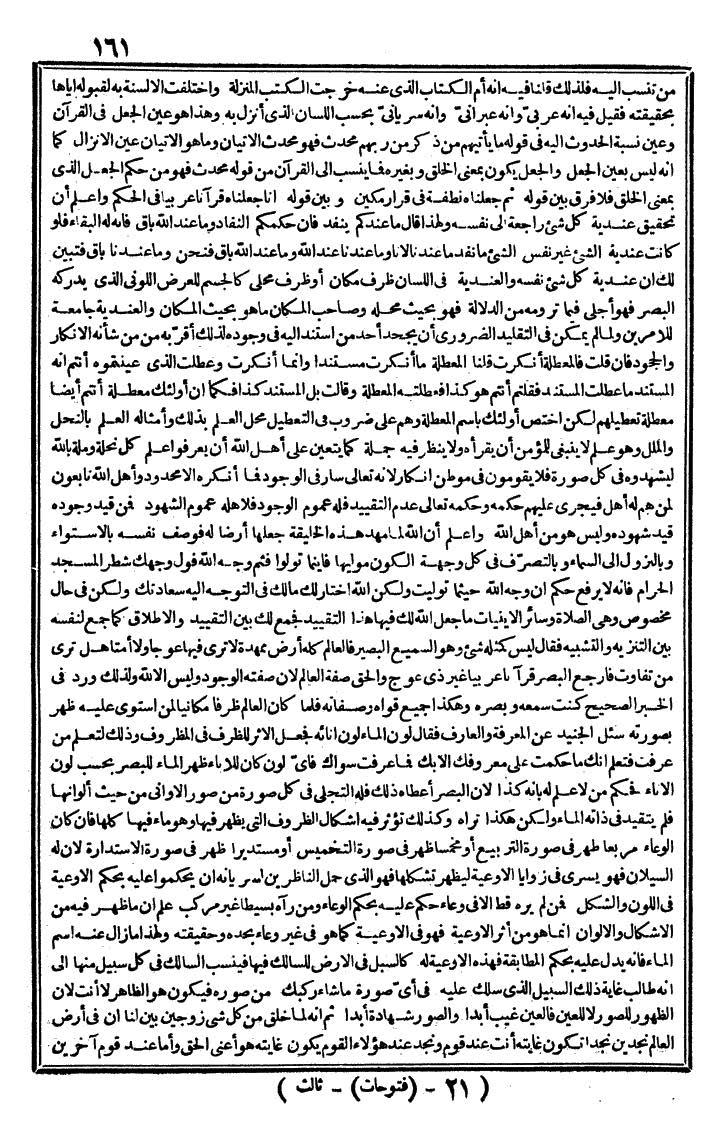 ١٦١
من تنسب اليه فلذلك قلنا فيه انه أم الكتاب الذي عنه خرجت الكتب المنزلة واختلفت الالسنة به لقبوله اياها
بحقيقته فقيل فيه انه عربي وانه عبراني وانه سرياني بحسب اللسان الذي أنزل به وهذا هو عين الجعل في القرآن
وعين نسبة الحدوث اليه في قوله ما يأتيهم من ذكر من ربهم محدث فهو محدث الاتيان وما هو الاتيان عين الانزال كما
انه ليس بعين الجعل والجعل يكون بمعنى الخلق وبغيره فما ينسب الى القرآن من قوله محدث فهو من حكم الجعل الذي
بمعنى الخلق فلا فرق بين قوله ثم جعلناه نطفة في قرار مكين وبين قوله انا جعلناه قرآنا عربيا في الحكم واعلم أن
تحقيق عندية كل شئ راجعة الى نفسه ولهذا قال ما عندكم ينفد فان حكمكم النفاد وما عند الله باق فانه له البقاء فلو
كانت عندية الشئ غير نفس الشئ ما نفد ما عندنا لانا وما عندنا عند الله وما عند الله باق فنحن وما عندنا باق فتبين
لك ان عندية كل شئ نفسه والعندية في اللسان ظرف مكان أو ظرف محلي كالجسم للعرض اللوني الذي يدركه
البصر فهو أجلى فيما ترومه من الدلالة فهو بحيث محله وصاحب المكان ما هو بحيث المكان والعندية جامعة
للامرين ولما لم يمكن في التقليد الضروري أن يجحد أحد من استند اليه في وجوده لذلك أقر به من من شأنه الانكار
والجحود فان قلت فالمعطلة أنكرت قلنا المعطلة ما أنكرت مستندا وانما أنكرت وعطلت الذي عينقوه أنتم انه
المستند ما عطلت المستند فقلتم أنتم هو كذا فعطلته المعطلة وقالت بل المستند كذا فكما ان أولئك معطلة أنتم أيضا
معطلة تعطيلهم لكن اختص أولئك باسم المعطلة وهم على ضروب في التعطيل محل العلم بذلك وأمثاله العلم بالنحل
والملل وهو علم لا ينبغي للمؤمن أن يقرأه ولا ينظر فيه جملة كما يتعين على أهل الله أن يعرفوا علم كل نحلة وملة بالله
ليشهدوه في كل صورة فلا يقومون في موطن انكار لانه تعالى سار في الوجود فما أنكره الا محدود وأهل الله تابعون
لمن هم له أهل فيجري عليهم حكمه وحكمه تعالى عدم التقييد فله عموم الوجود فلاهله عموم الشهود فمن قيد وجوده
قيد شهوده وليس هو من أهل الله واعلم أن الله لما مهد هذه الخليقة جعلها أرضا له فوصف نفسه بالاستواء
وبالنزول الى السماء وبالتصرف في كل وجهة الكون موليها فاينما تولوا فثم وجه الله فول وجهك شطر المسجد
الحرام فانه لا يرفع حكم ان وجه الله حيثما توليت ولكن الله اختار لك مالك في التوجه اليه سعادتك ولكن في حال
مخصوص وهي الصلاة وسائر الاينيات ما جعل الله لك فيها هذا التقييد فجمع لك بين التقييد والاطلاق كما جمع لنفسه
بين التنزيه والتشبيه فقال ليس كمثله شئ وهو السميع البصير فالعالم كله أرض ممهدة لا ترى فيها عوجا ولا أمتا هل ترى
من تفاوت فارجع البصر قرآنا عربيا غير ذي عوج والحق صفة العالم لان صفته الوجود وليس الا الله ولذلك ورد في
الخبر الصحيح كنت سمعه وبصره وهكذا جميع قواه وصفاته فلما كان العالم ظرفا مكانيا لمن استوى عليه ظهر
بصورته سئل الجنيد عن المعرفة والعارف فقال لون الماء لون انائه فجعل الاثر للظرف في المظروف وذلك لتعلم من
عرفت فتعلم انك ما حكمت على معروفك الا بك فما عرفت سواك فاي لون كان للاناء ظهر الماء للبصر بحسب لون
الاناء فحكم من لا علم له بانه كذا لان البصر أعطاه ذلك فله التجلي في كل صورة من صور الاواني من حيث ألوانها
فلم يتقيد في ذاته الماء ولكن هكذا تراه وكذلك تؤثر فيه اشكال الظروف التي يظهر فيها وهو ماء فيها كلها فان كان
الوعاء مربعا ظهر في صورة التربيع أو مخمسا ظهر في صورة التخميس أو مستديرا ظهر في صورة الاستدارة لان له
السيلان فهو يسري في زوايا الاوعية ليظهر تشكلها فهو الذي حمل الناظرين لسريانه ان يحكموا عليه بحكم الاوعية
في اللون والشكل فمن لم يره قط الا في وعاء حكم عليه بحكم الوعاء ومن رآه بسيطا غير مركب علم ان ما ظهر فيه من
الاشكال والالوان انما هو من أثر الاوعية فهو في الاوعية كما هو في غير وعاء بحده وحقيقته ولهذا ما زال عنه اسم
الماء فانه يدل عليه بحكم المطابقة فهذه الاوعية له كالسبل في الارض للسالك فيها فينسب السالك في كل سبيل منها الى
انه طالب غاية ذلك السبيل الذي سلك عليه في أي صورة ما شاء ركبك من صوره فيكون هو الظاهر لا أنت لان
الظهور للصور لا للعين فالعين غيب أبدا والصور شهادة أبدا ثم انه لما خلق من كل شئ زوجين بين لنا ان في أرض
العالم نجدين نجدا تكون غايته أنت عند قوم ونجد عند هؤلاء القوم يكون غايته هو أعني الحق وأما عند قوم آخرين
( ٢١ - (فتوحات) - ثالث )